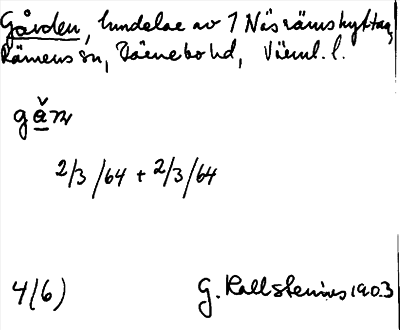 Gården, lundelar av 1 Näsrämshyttan,
Rämens sn, Färnebo hd, Värml. l.
2/3/64 + 2/3/64
4(6)
G. Kallstenius 1903